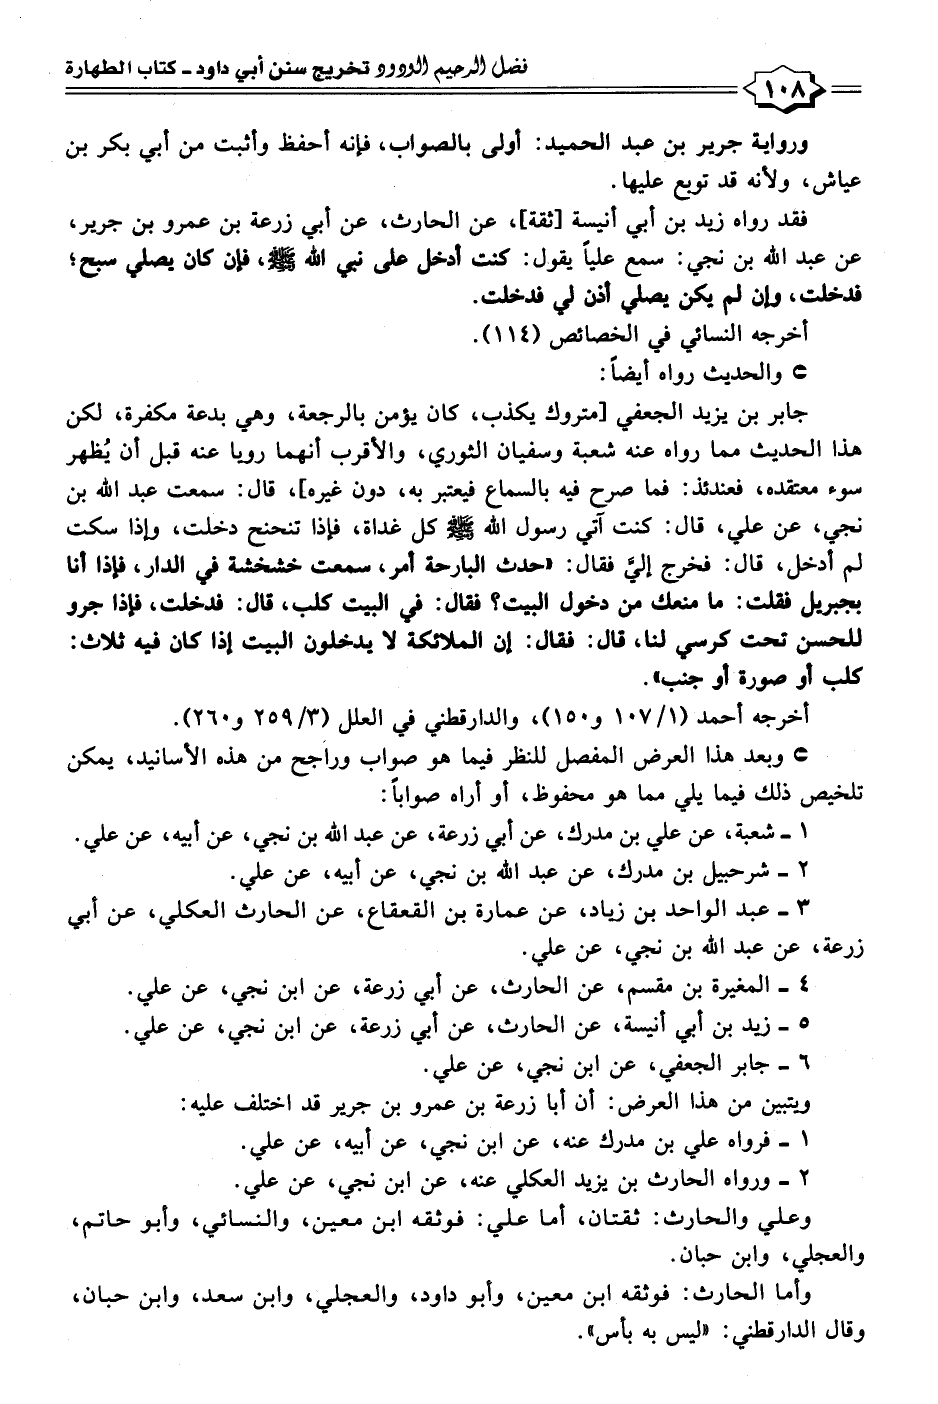 فضل الرحيم الودود تخريج سنن أبي داود - كتاب الطهارة
١٠٨
ورواية جرير بن عبد الحميد: أولى بالصواب، فإنه أحفظ وأثبت من أبي بكر بن
عياش، ولأنه قد توبع عليها.
فقد رواه زيد بن أبي أنيسة [ثقة]، عن الحارث، عن أبي زرعة بن عمرو بن جرير،
عن عبد الله بن نجي: سمع علياً يقول: كنت أدخل على نبي الله ﷺ، فإن كان يصلي سبح؛
فدخلت، وإن لم يكن يصلي أذن لي فدخلت.
أخرجه النسائي في الخصائص (١١٤).
والحديث رواه أيضاً:
جابر بن يزيد الجعفي [متروك يكذب، كان يؤمن بالرجعة، وهي بدعة مكفرة، لكن
هذا الحديث مما رواه عنه شعبة وسفيان الثوري، والأقرب أنهما رويا عنه قبل أن يُظهر
سوء معتقده، فعندئذ: فما صرح فيه بالسماع فيعتبر به، دون غيره]، قال: سمعت عبد الله بن
نجي، عن علي، قال: كنت آتي رسول الله ﷺ كل غداة، فإذا تنحنح دخلت، وإذا سكت
لم أدخل، قال: فخرج إليَّ فقال: «حدث البارحة أمر، سمعت خشخشة في الدار، فإذا أنا
بجبريل فقلت: ما منعك من دخول البيت؟ فقال: في البيت كلب، قال: فدخلت، فإذا جرو
للحسن تحت كرسي لنا، قال: فقال: إن الملائكة لا يدخلون البيت إذا كان فيه ثلاث:
كلب أو صورة أو جنب».
أخرجه أحمد (١/ ١٠٧ و١٥٠)، والدارقطني في العلل (٣/ ٢٥٩ و٢٦٠).
وبعد هذا العرض المفصل للنظر فيما هو صواب وراجح من هذه الأسانيد، يمكن
تلخيص ذلك فيما يلي مما هو محفوظ، أو أراه صواباً:
١ - شعبة، عن علي بن مدرك، عن أبي زرعة، عن عبد الله بن نجي، عن أبيه، عن علي.
٢ - شرحبيل بن مدرك، عن عبد الله بن نجي، عن أبيه، عن علي.
٣ - عبد الواحد بن زياد، عن عمارة بن القعقاع، عن الحارث العكلي، عن أبي
زرعة، عن عبد الله بن نجي، عن علي.
٤ - المغيرة بن مقسم، عن الحارث، عن أبي زرعة، عن ابن نجي، عن علي.
٥ - زيد بن أبي أنيسة، عن الحارث، عن أبي زرعة، عن ابن نجي، عن علي.
٦ - جابر الجعفي، عن ابن نجي، عن علي.
ويتبين من هذا العرض: أن أبا زرعة بن عمرو بن جرير قد اختلف عليه:
١ - فرواه علي بن مدرك عنه، عن ابن نجي، عن أبيه، عن علي.
٢ - ورواه الحارث بن يزيد العكلي عنه، عن ابن نجي، عن علي.
وعلي والحارث: ثقتان، أما علي: فوثقه ابن معين، والنسائي، وأبو حاتم،
والعجلي، وابن حبان.
وأما الحارث: فوثقه ابن معين، وأبو داود، والعجلي، وابن سعد، وابن حبان،
وقال الدارقطني: «ليس به بأس».